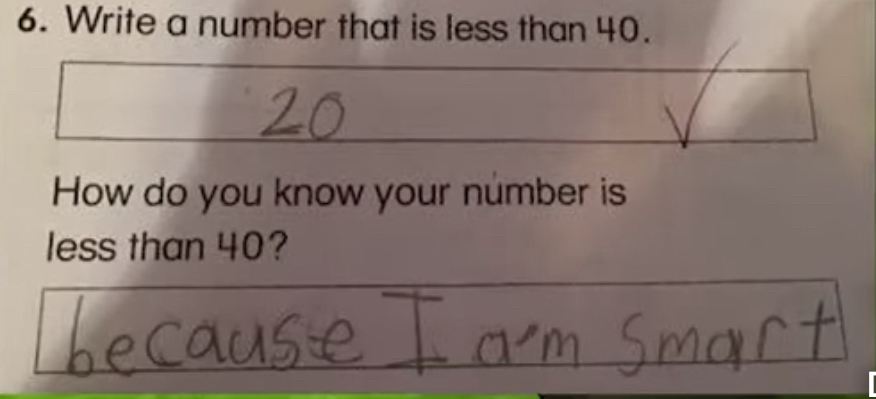 6. Write a number that is less than 40.
20 ✓
How do you know your number is
less than 40?
because I am smart